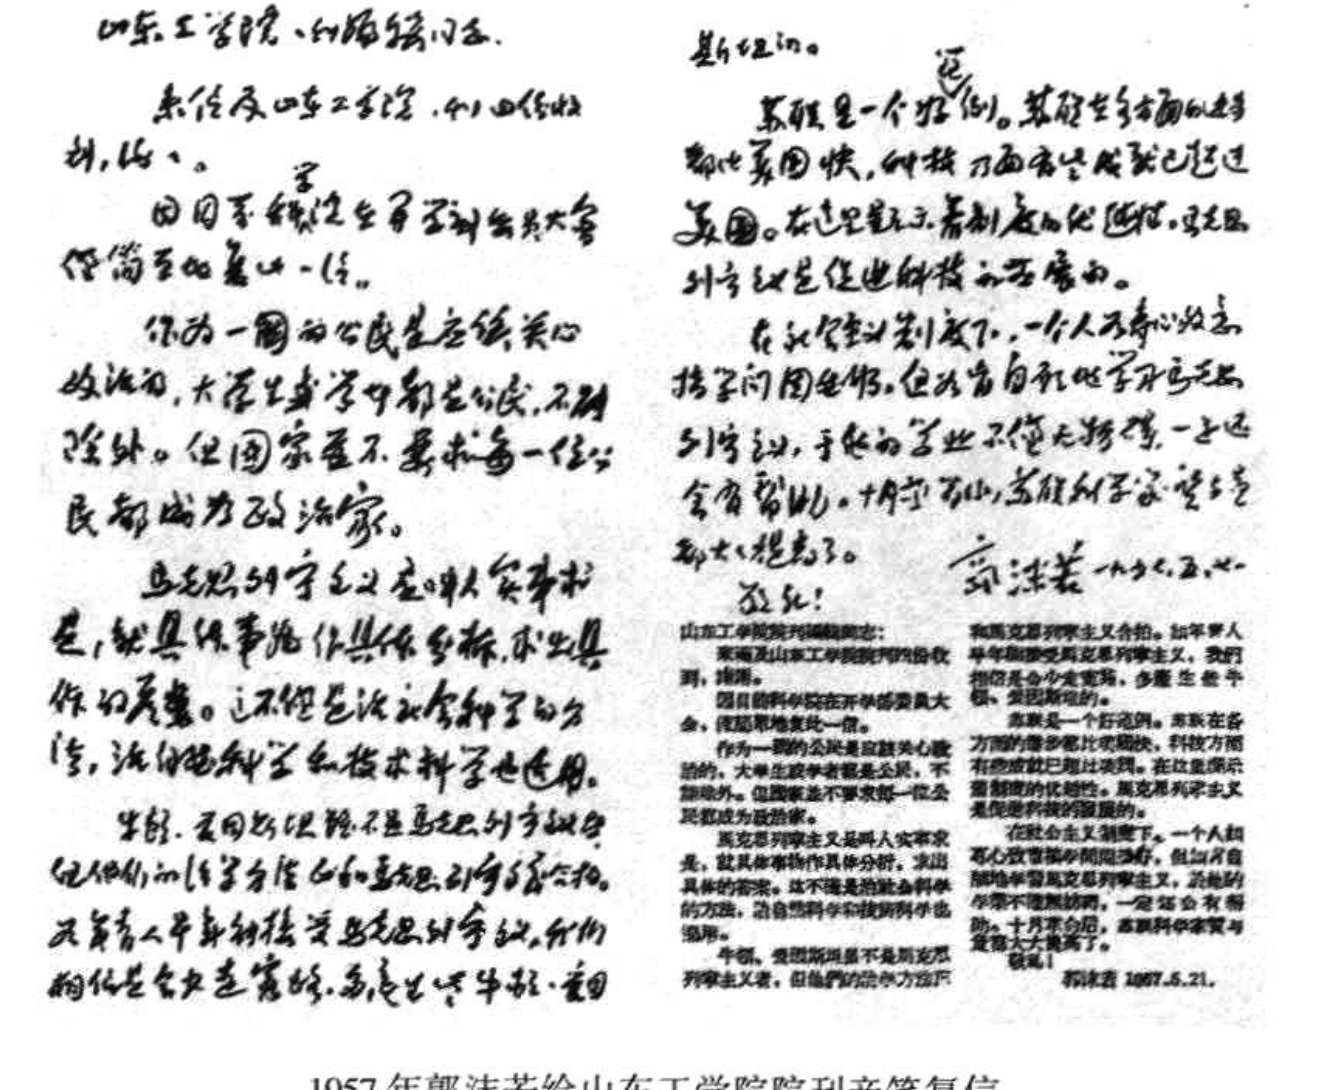 山东工学院院刊编辑同志：
来信及山东工学院院刊四份收
到，谢谢。
因目前科学院在开学部委员大会
仅简略地复此一信。
作为一国的公民是应该关心
政治的，大学生或学者都是公民，不能
除外。但国家并不要求每一位公
民都成为政治家。
马克思列宁主义是叫人实事求
是，就具体事物作具体分析，求出具
体的答案。这不仅是治社会科学的方
法，治自然科学和技术科学也适用。
牛顿、爱因斯坦虽不是马克思列宁主义者
但他们的治学方法却和马克思列宁主义合拍。
如年青人早年就接受马克思列宁主义，我们
相信是会少走弯路，多产生些牛顿、爱因
斯坦的。
苏联是一个好范例。苏联在各方面的进步
都比美国快，科技方面有些成就已超过
美国。在这里显示着制度的优越性。马克思
列宁主义是促进科技的发展的。
在社会主义制度下，一个人如专心致志
搞学问固然好，但如肯自动地学习马克思
列宁主义，于他的学业不仅无妨碍，一定还
会有帮助。十月革命后，苏联科学家质与量
都大大提高了。
敬礼！
郭沫若 一九五七、五、廿一
山东工学院院刊编辑同志：
来函及山东工学院院刊四份收
到，谢谢。
因目前科学院在开学部委员大
会，仅简略地复此一信。
作为一国的公民是应该关心政
治的，大学生或学者都是公民，不
能除外。但国家并不要求每一位公
民都成为政治家。
马克思列宁主义是叫人实事求
是，就具体事物作具体分析，求出
具体的答案。这不仅是治社会科学
的方法，治自然科学和技术科学也
适用。
牛顿、爱因斯坦虽不是马克思
列宁主义者，但他们的治学方法却
和马克思列宁主义合拍。如年青人
早年就接受马克思列宁主义，我们
相信是会少走弯路，多产生些牛
顿、爱因斯坦的。
苏联是一个好范例。苏联在各
方面的进步都比美国快，科技方面
有些成就已超过美国。在这里显示
着制度的优越性。马克思列宁主义
是促进科技的发展的。
在社会主义制度下，一个人如
专心致志搞学问固然好，但如肯自
动地学习马克思列宁主义，于他的
学业不仅无妨碍，一定还会有帮
助。十月革命后，苏联科学家质与
量都大大提高了。
敬礼！
郭沫若 1957.5.21.
1957年郭沫若给山东工学院院刊亲笔复信